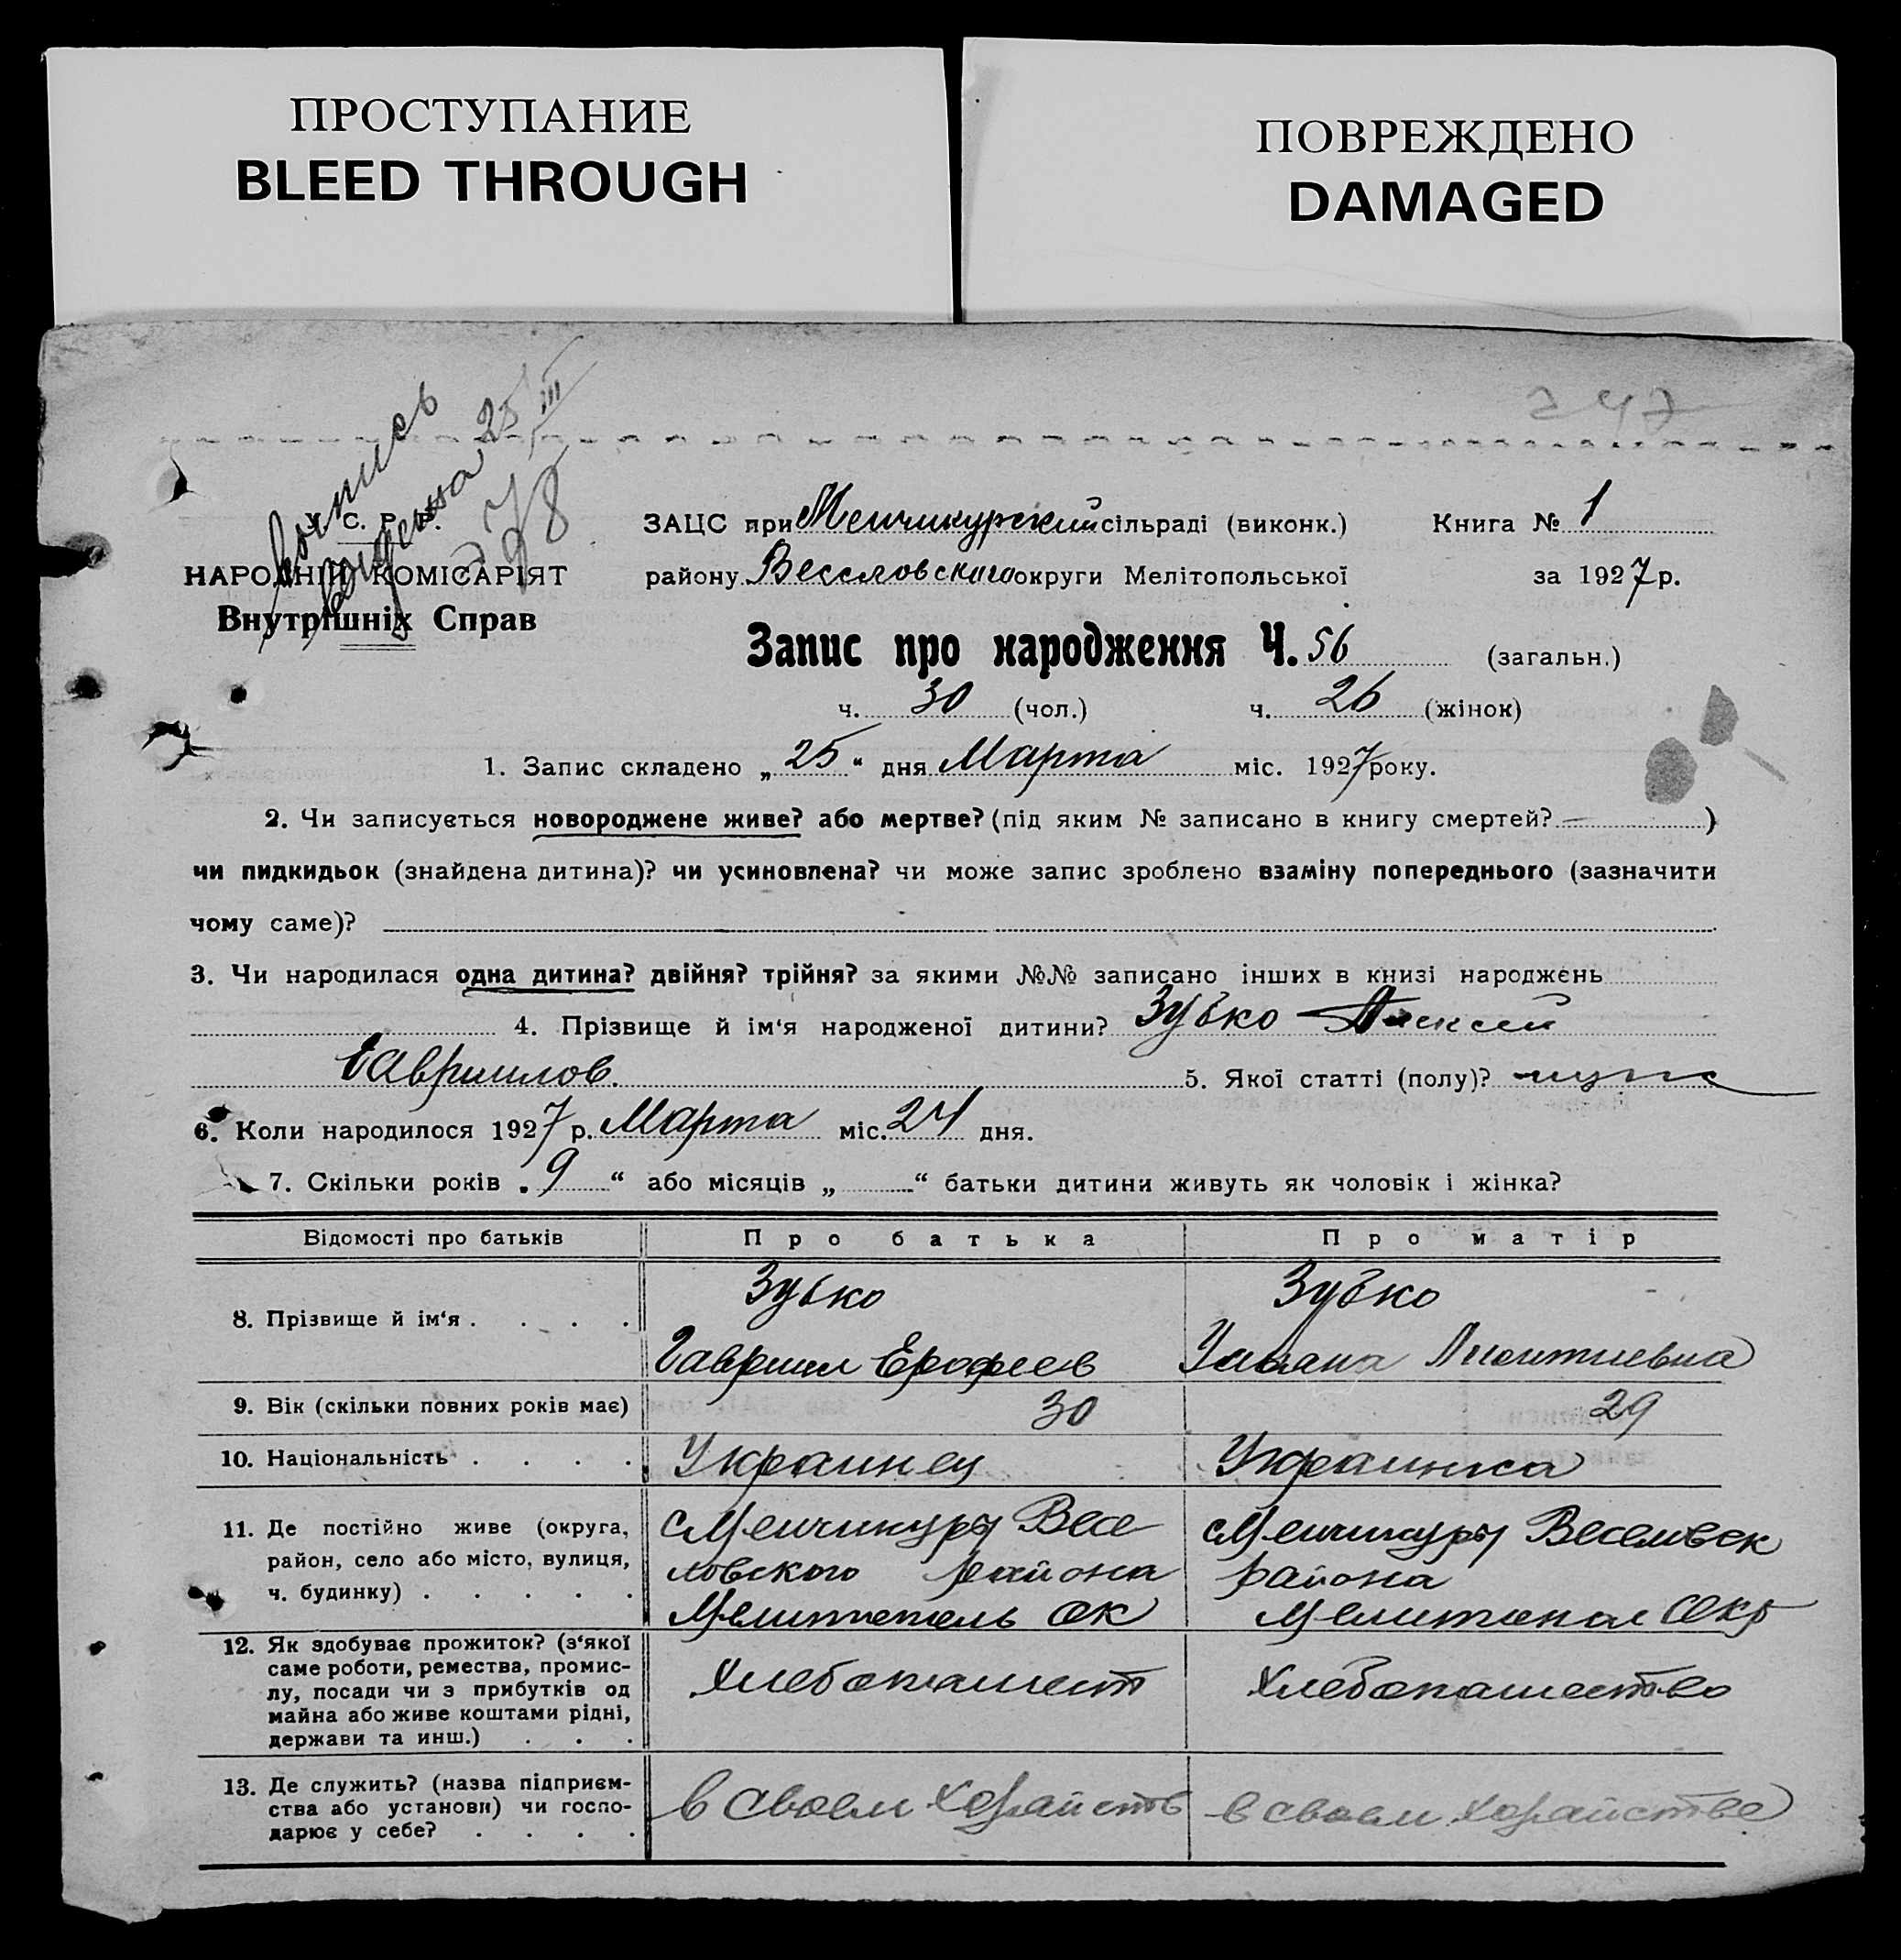 ПРОСТУПАНИЕ
BLEED THROUGH
ПОВРЕЖДЕНО
DAMAGED
247
копись
25/III
278
У. С. Р. Р.
НАРОДНІЙ КОМІСАРІЯТ
Внутрішніх Справ
ЗАЦС при Менчикурский сільраді (виконк.) Книга № 1
району Веселовского округи Мелітопольської за 1927 р.
Запис про народження Ч. 56 (загальн.)
ч. 30 (чол.) ч. 26 (жінок)
1. Запис складено „25“ дня Марта міс. 1927 року.
2. Чи записується новороджене живе? або мертве? (під яким № записано в книгу смертей? — )
чи пидкидьок (знайдена дитина)? чи усиновлена? чи може запис зроблено взаміну попереднього (зазначити
чому саме)?
3. Чи народилася одна дитина? двійня? трійня? за якими №№ записано інших в книзі народжень
4. Прізвище й ім‘я народженої дитини? Зубко Алексей
Гавриилов. 5. Якої статті (полу)? муж
6. Коли народилося 1927 р. Марта міс. 24 дня.
7. Скільки років „9“ або місяців „ “ батьки дитини живуть як чоловік і жінка?
Відомості про батьків Про батька Про матір
8. Прізвище й ім‘я . . . . Зубко Зубко
Гавриил Ерофеев Ульяна Леонтиевна
9. Вік (скільки повних років має) 30 29
10. Національність . . . . Украинец Украинка
11. Де постійно живе (округа, Менчикуры Весе- Менчикуры Веселовск
район, село або місто, вулиця, ловского района района
ч. будинку) . . . . . Мелитополь ок Мелитопол Окр
12. Як здобуває прожиток? (з‘якої
саме роботи, ремества, промис-
лу, посади чи з прибутків од Хлебопашест Хлебопашество
майна або живе коштами рідні,
держави та инш.) . . .
13. Де служить? (назва підприєм-
ства або установи) чи госпо- в своем Хозяйств в своем хозяйстве
дарює у себе? . . . .